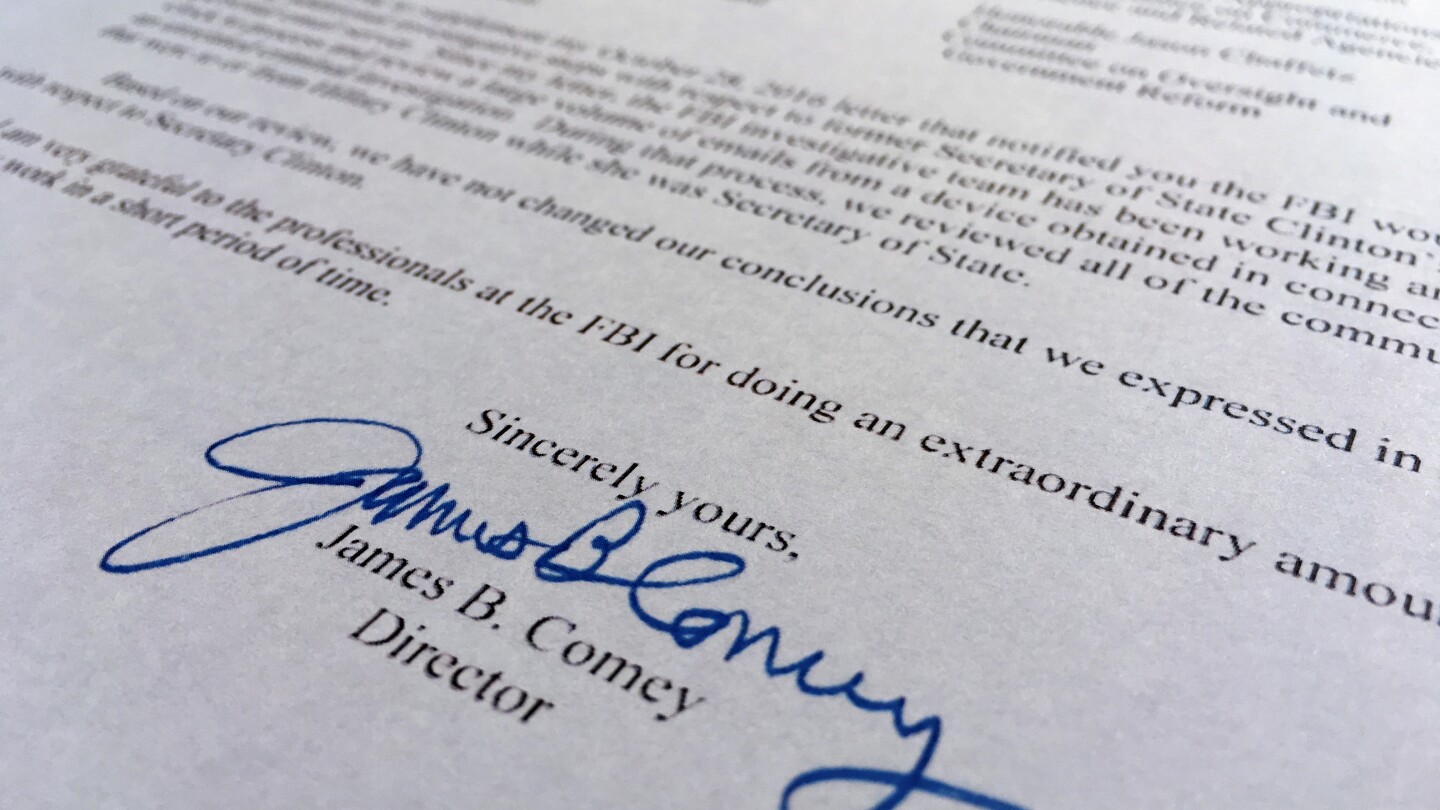 Honorable Jason Chaffetz
Chairman
Committee on Oversight and
Government Reform
October 28, 2016 letter that notified you the FBI wou
with respect to former Secretary of State Clinton's
the FBI investigative team has been working ar
volume of emails from a device obtained in connec
investigation. During that process, we reviewed all of the commu
from Hillary Clinton while she was Secretary of State.
Based on our review, we have not changed our conclusions that we expressed in
with respect to Secretary Clinton.
I am very grateful to the professionals at the FBI for doing an extraordinary amou
work in a short period of time.
Sincerely yours,
James B Comey
James B. Comey
Director